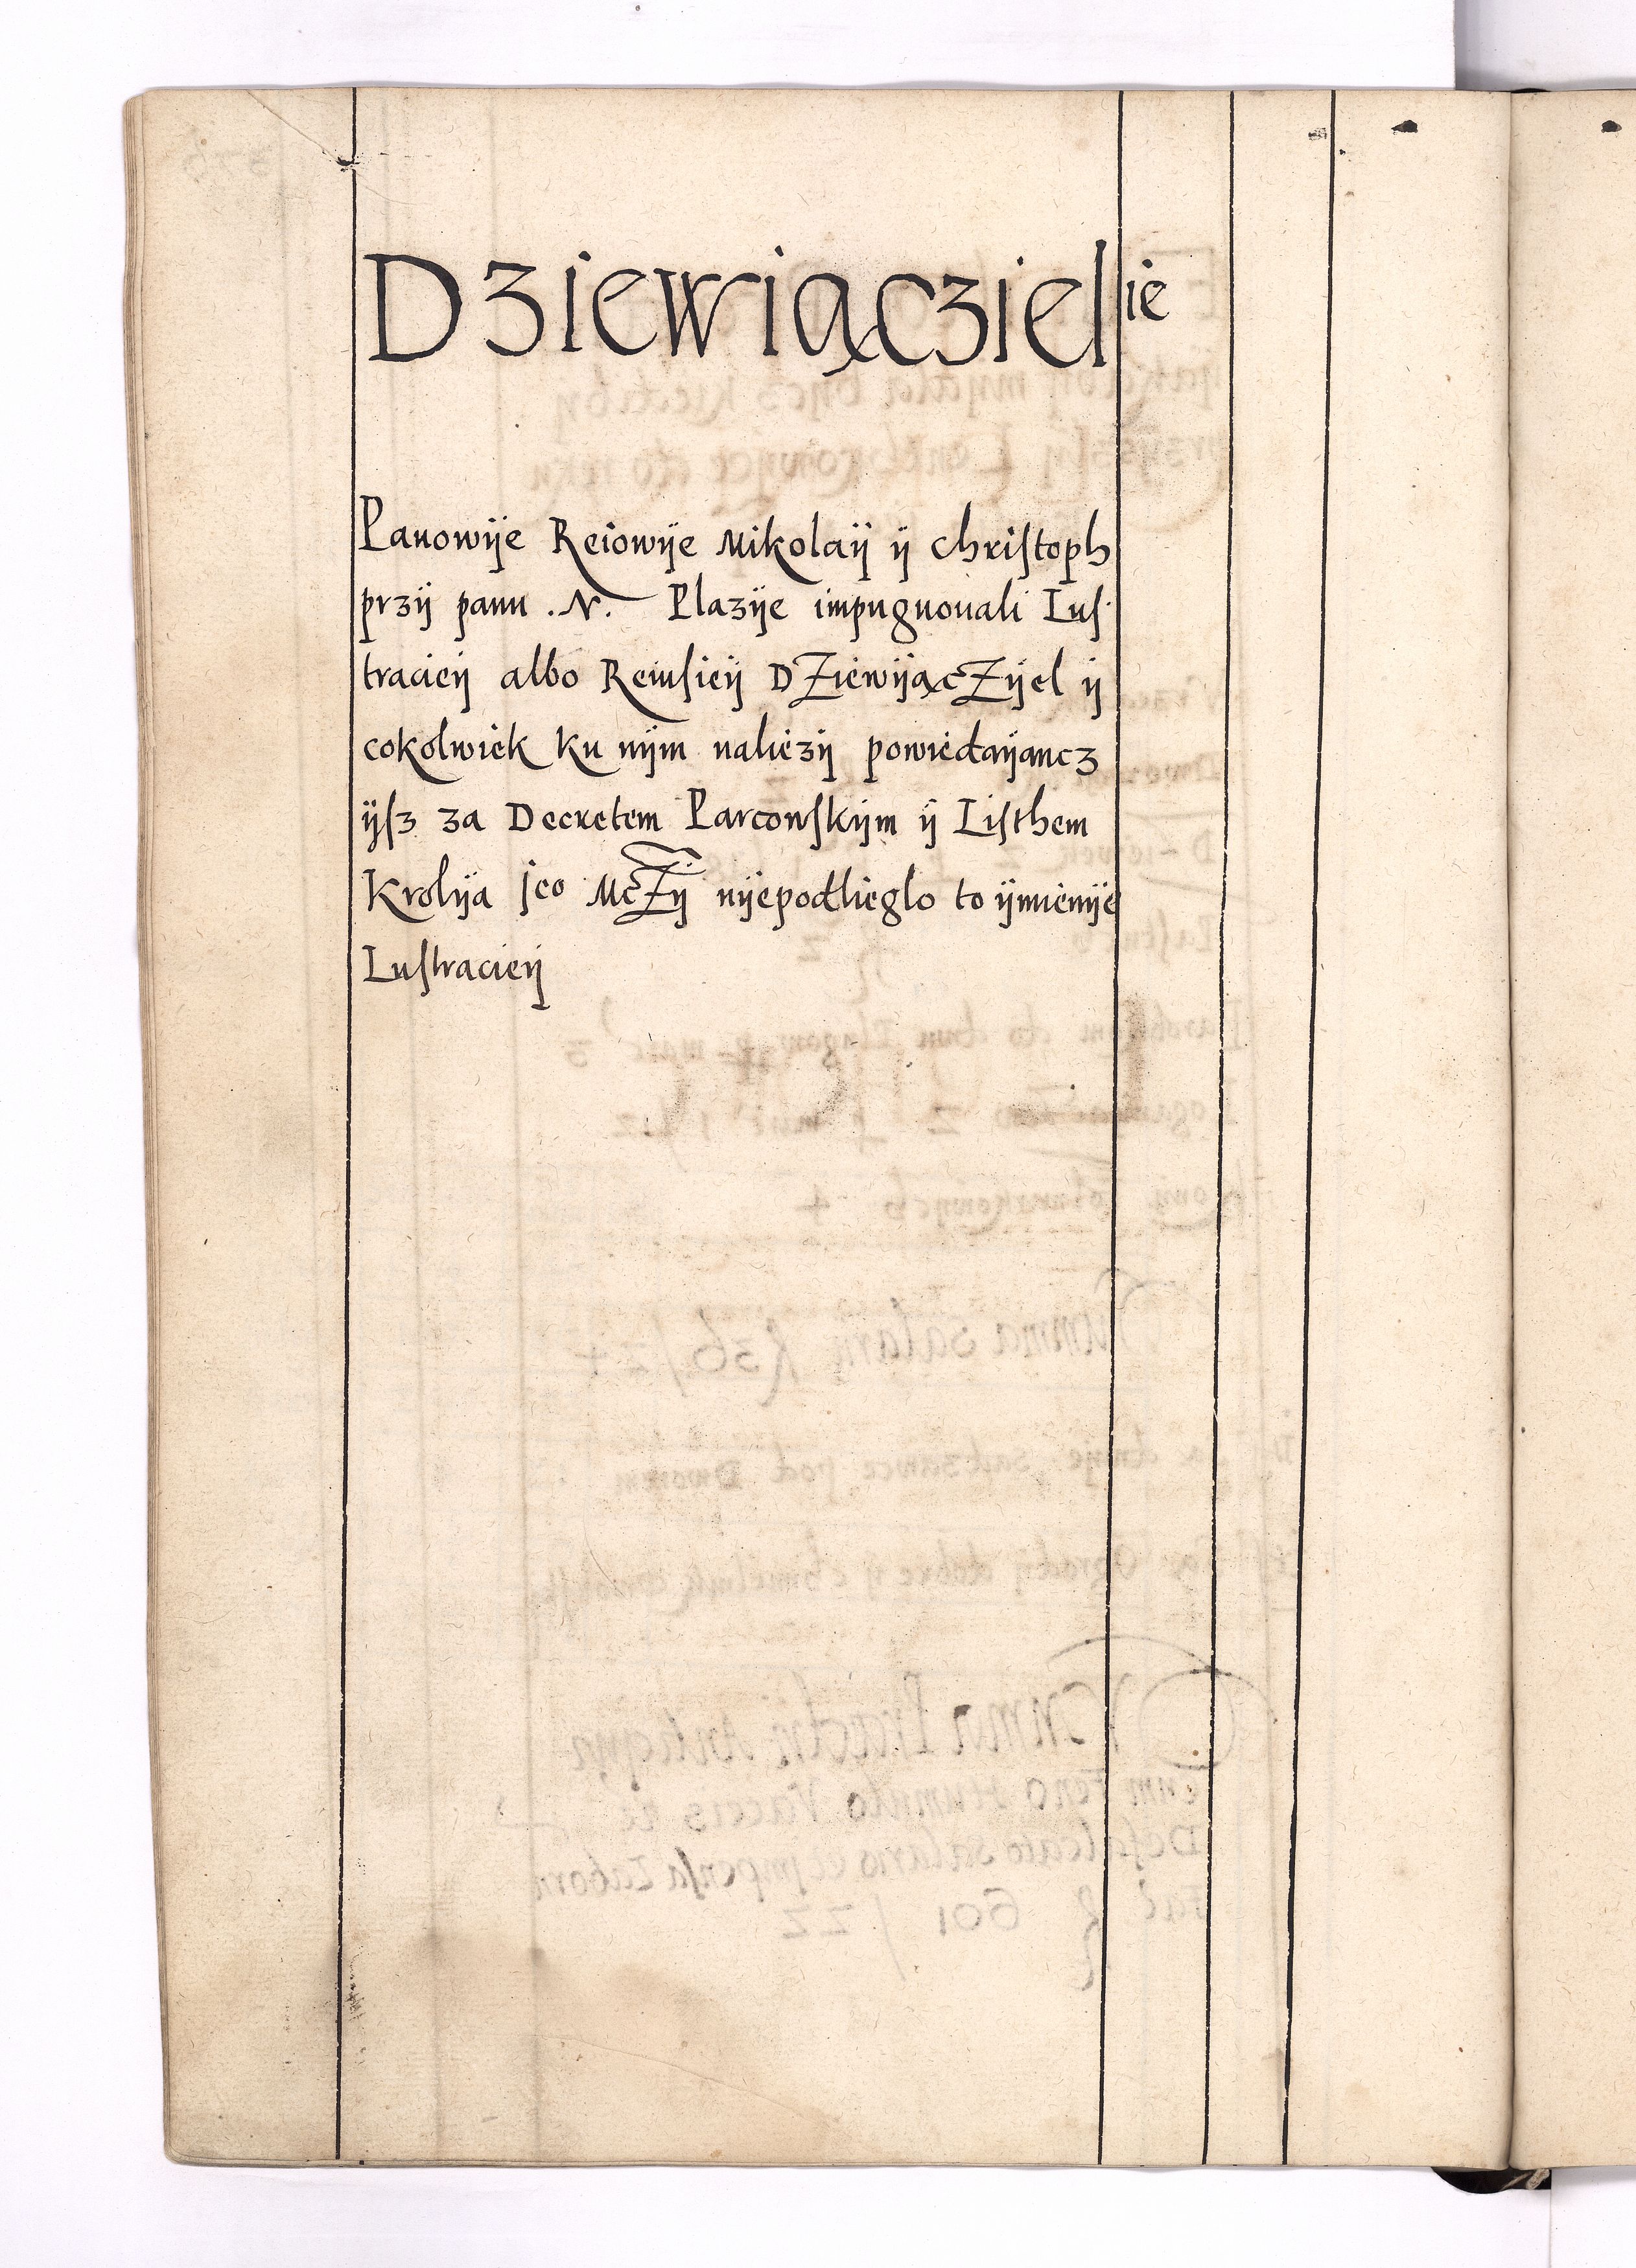 Dziewiącziel ie
Panowije Reiowije Mikolaij ij Christoph
przij panu .N. Plazije impugnouali Lus
tracieij albo Reuisieij DZiewijącZijel ij
cokolwiek ku nijm naliezij powiedaijancz
ijsz za Decretem Parcowskijm ij Listhem
Krolija jeo McZij nijepodlieglo to ijmienije
Lustracieij